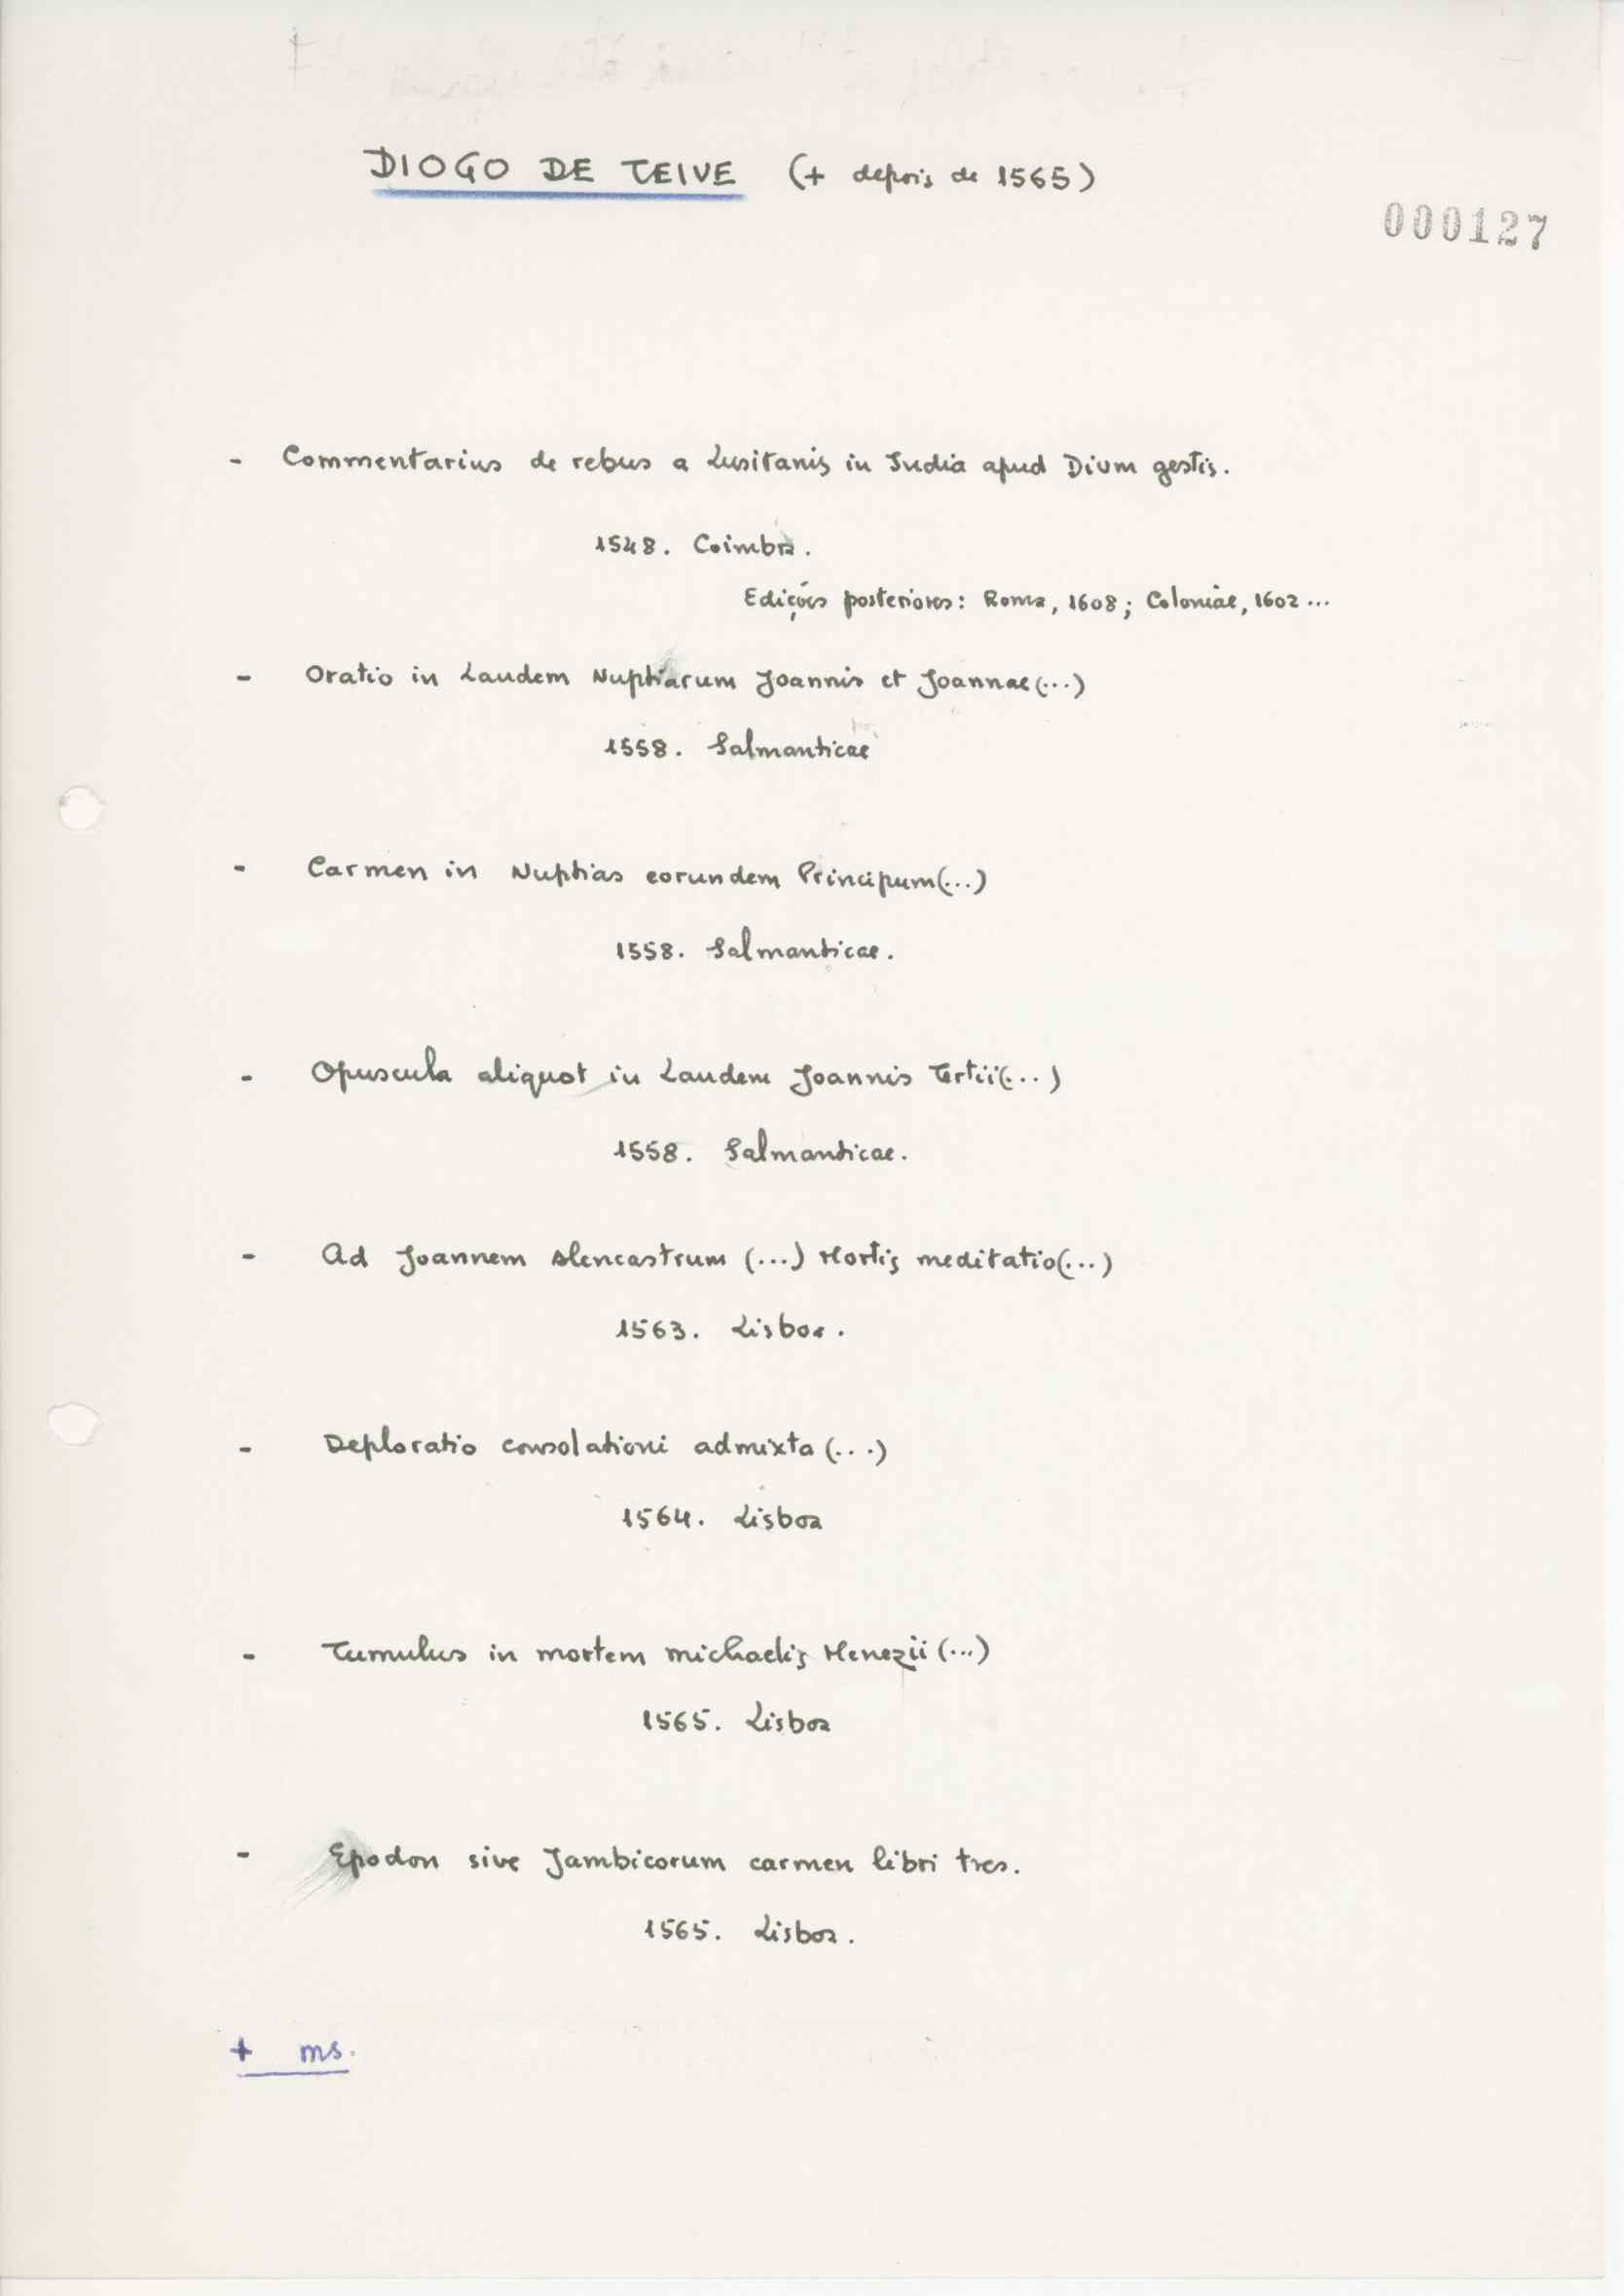 DIOGO DE TEIVE (+ depois de 1565)
000127
- Commentarius de rebus a Lusitanis in India apud Dium gestis.
1548. Coimbra.
Edições posteriores: Roma, 1608; Coloniae, 1602...
- Oratio in Laudem Nuptiarum Joannis et Joannae (...)
1558. Salmanticae
- Carmen in Nuptias eorundem Principum (...)
1558. Salmanticae.
- Opuscula aliquot in Laudem Joannis Tertii (...)
1558. Salmanticae.
- Ad Joannem Alencastrum (...) Mortis meditatio (...)
1563. Lisboa.
- Deploratio consolationi admixta (...)
1564. Lisboa
- Tumulus in mortem Michaelis Menezii (...)
1565. Lisboa
- Epodon sive Jambicorum carmen libri tres.
1565. Lisboa.
+ ms.